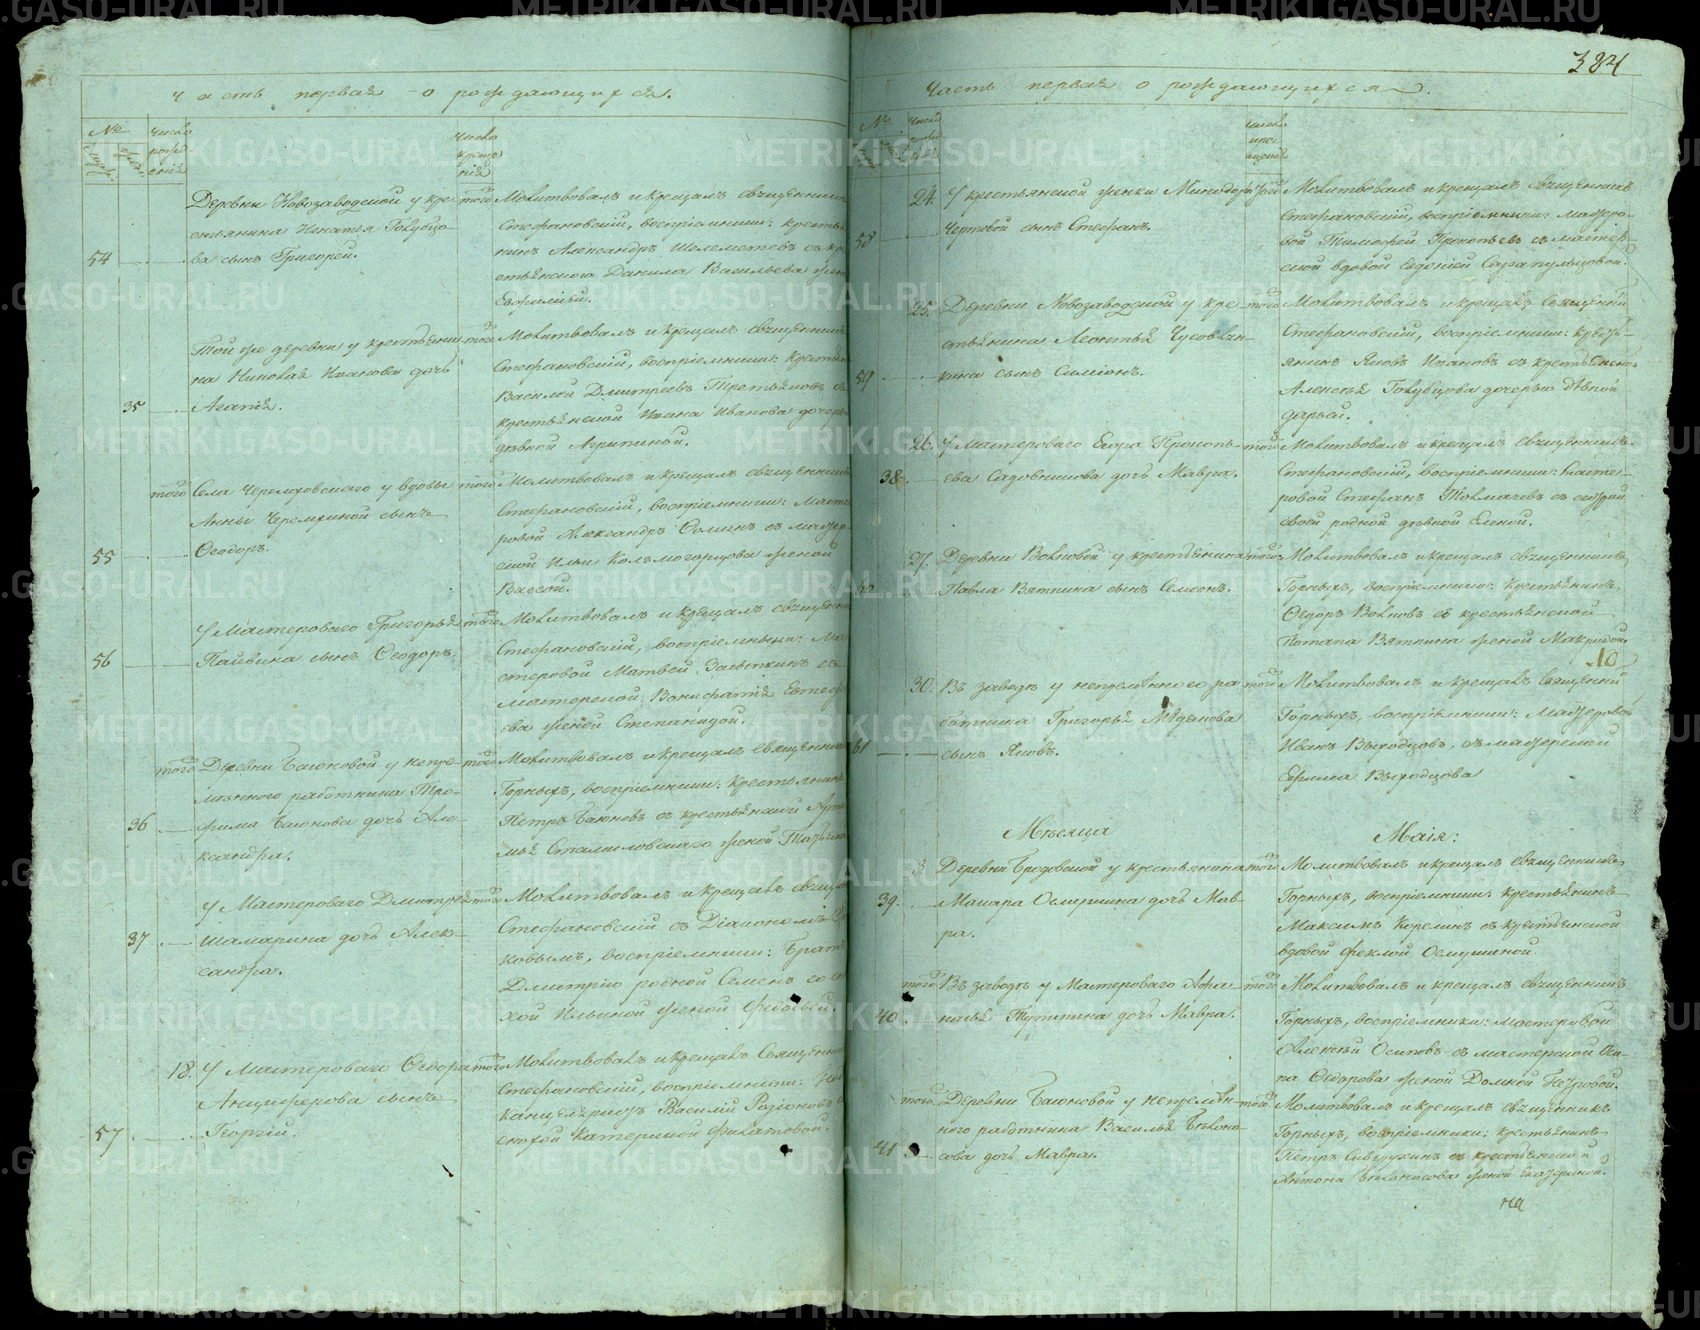 384
Часть первая о рождающихся.
№
число рождения
число крещения
Деревни Новозаводской у кре-
стьянина Игнатья Голубцо-
54
ва сынъ Григорей.
того
Молитвовалъ и крещалъ священникъ
Стефановскій, воспріемники: крестья
нинъ Александръ Шелеметевъ съ кре
стьянскою Данила Васильева женою
Евфиміей.
Той же деревни у крестьяни
на Николая Иванова дочь
35
Агапія.
того
Молитвовалъ и крещалъ священникъ
Стефановскій, воспріемники: крестьян
Василей Дмитріевъ Третьяковъ съ
крестьянской Ивана Иванова дочерью
дѣвкой Агрипиной.
того
Села Черемховскаго у вдовы
Анны Черемхиной сынъ
55
Ѳеодоръ.
того
Молитвовалъ и крещалъ священникъ
Стефановскій, воспріемники: Масте
ровой Александръ Ѳоминъ съ мастер
ской Ильи Колъмогорцова женой
Вассой.
У Мастероваго Григорья
56
Пайвина сынъ Ѳеодоръ.
того
Молитвовалъ и крещалъ священникъ
Стефановскій, воспріемники: Ма
стеровой Матвей Засыпкинъ съ
мастерской Вонифатія Евстеф
ева женой Степанидой.
того
Деревни Баюновой у непре-
мѣнного работника Тро-
36
фима Баюнова дочь Але-
ксандра.
того
Молитвовалъ и крещалъ священникъ
Горныхъ, воспріемники: крестьянинъ
Петръ Баюновъ съ крестьянской Арте
мья женой
У Мастероваго Дмитрея
37
Шамарина дочь Алек-
сандра.
того
Молитвовалъ и крещалъ священ
Стефановскій съ Діакономъ
ковымъ, воспріемники: Братъ
Дмитрію родной Семенъ со сно
хой Ильиной женой Федосьей.
18.
У Мастероваго Ѳедора
Анциферова сынъ
57
Георгій.
того
Молитвовалъ и крещалъ Священникъ
Стефановскій, воспріемники:
канцеляристъ Василій Родіоновъ съ
снохой Катериной Филатовой.
Часть первая о рождающихся.
№
число рожденія
число крещенія
24.
У крестьянской женки Минодоры
58
Чертовой сынъ Стефанъ.
Молитвовалъ и крещалъ священникъ
Стефановскій, воспріемники: мастеро-
вой Тимофей Прокопьевъ съ мастер-
ской вдовой Евдокіей Сарапульцовой.
25.
Деревни Новозаводской у кре-
стьянина Леонтья Чусовлян-
59
кина сынъ Симіонъ.
того
Молитвовалъ и крещалъ Священникъ
Стефановскій, воспріемники: кресть-
янинъ Яковъ Ивановъ съ крестьянской
Алексѣя Голубцова дочерью дѣвкой
Дарьей.
26.
У Мастероваго Егора Прокопь-
38
ева Садовникова дочь Мавра.
того
Молитвовалъ и крещалъ священникъ
Стефановскій, воспріемники: Масте-
ровой Стефанъ Толмачевъ съ сестрой
своей родной дѣвкой Еленой.
27.
Деревни Волковой у крестьянина
60
Павла Вяткина сынъ Семенъ.
того
Молитвовалъ и крещалъ священникъ
Горныхъ, воспріемники: крестьянинъ
Ѳедоръ Волковъ съ крестьянской
Потапа Вяткина женой Макридой.
10
30.
Въ заводѣ у непремѣнного ра
ботника Григорья Мѣденова
61
сынъ Яковъ.
того
Молитвовалъ и крещалъ Священникъ
Горныхъ, воспріемники: Мастеровой
Иванъ Выходцовъ, съ мастерской
Ефима Выходцова
Мѣсяца Маія:
3
Деревни Бродовской у крестьянина
39.
Макара Осмушина дочь Мав-
ра.
того
Молитвовалъ и крещалъ священникъ
Горныхъ, воспріемники: крестьянинъ
Максимъ Корелинъ съ крестьянской
вдовой Феклой Осмушиной.
того
Въ заводѣ у Мастероваго Афа-
40.
насья Тупикина дочь Мавра.
того
Молитвовалъ и крещалъ священникъ
Горныхъ, воспріемники: мастеровой
Алексѣй Осиповъ съ мастерской Оси-
па Ѳедорова женой Домной Петровой.
того
Деревни Баюновой у непремѣн-
ного работника Василья Бѣлоно-
41
сова дочь Мавра.
того
Молитвовалъ и крещалъ священникъ
Горныхъ, воспріемники: крестьянинъ
Петръ Сиверухинъ съ крестьянской
Антона Бѣлоносова женой Екатериной.
на
METRIKI.GASO-URAL.RU